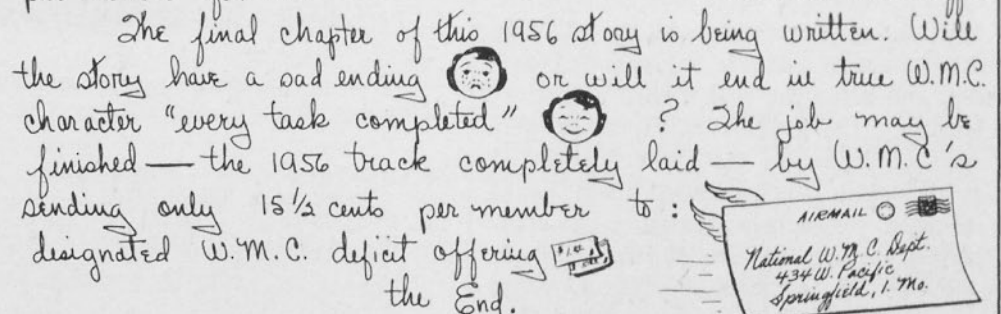 The final chapter of this 1956 story is being written. Will
the story have a sad ending or will it end in true W.M.C.
character "every task completed" ? The job may be
finished — the 1956 track completely laid — by W.M.C's
sending only 15 1/2 cents per member to :
designated W.M.C. deficit offering
the End.
AIRMAIL
National W.M.C. Dept.
434 W. Pacific
Springfield, 1. Mo.